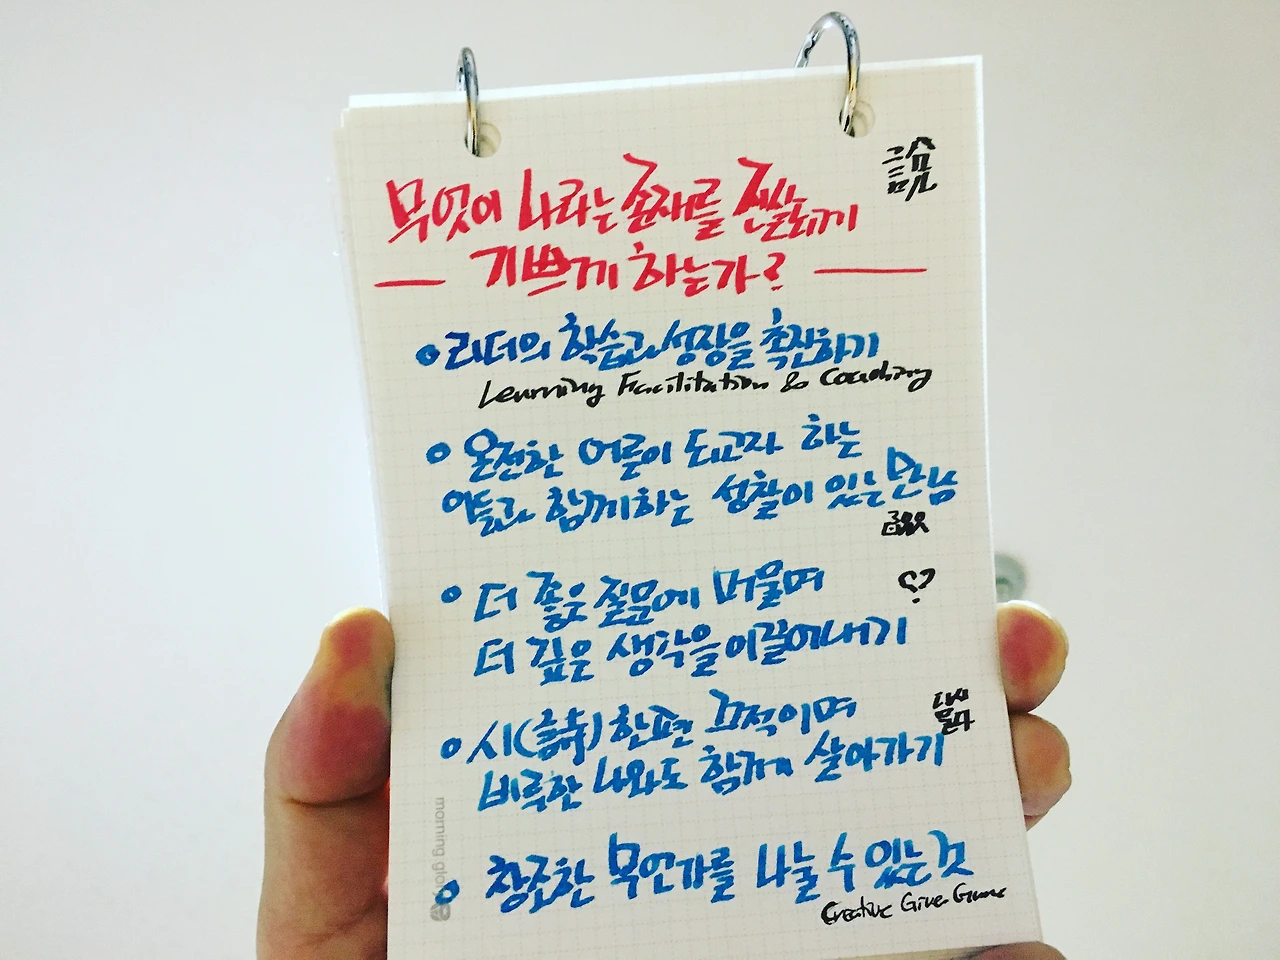 무엇이 나라는 존재를 진실되게
기쁘게 하는가?
리더의 학습과 성장을 촉진하기
Learning Facilitation & Coaching
온전한 어른이 되고자 하는
이들과 함께하는 성찰이 있는 만남
더 좋은 질문에 머물며
더 깊은 생각을 이끌어내기
시(詩) 한편 끄적이며
비루한 나와도 함께 살아가기
창조한 무언가를 나눌 수 있는 것
Creative Giver Game
morning glory